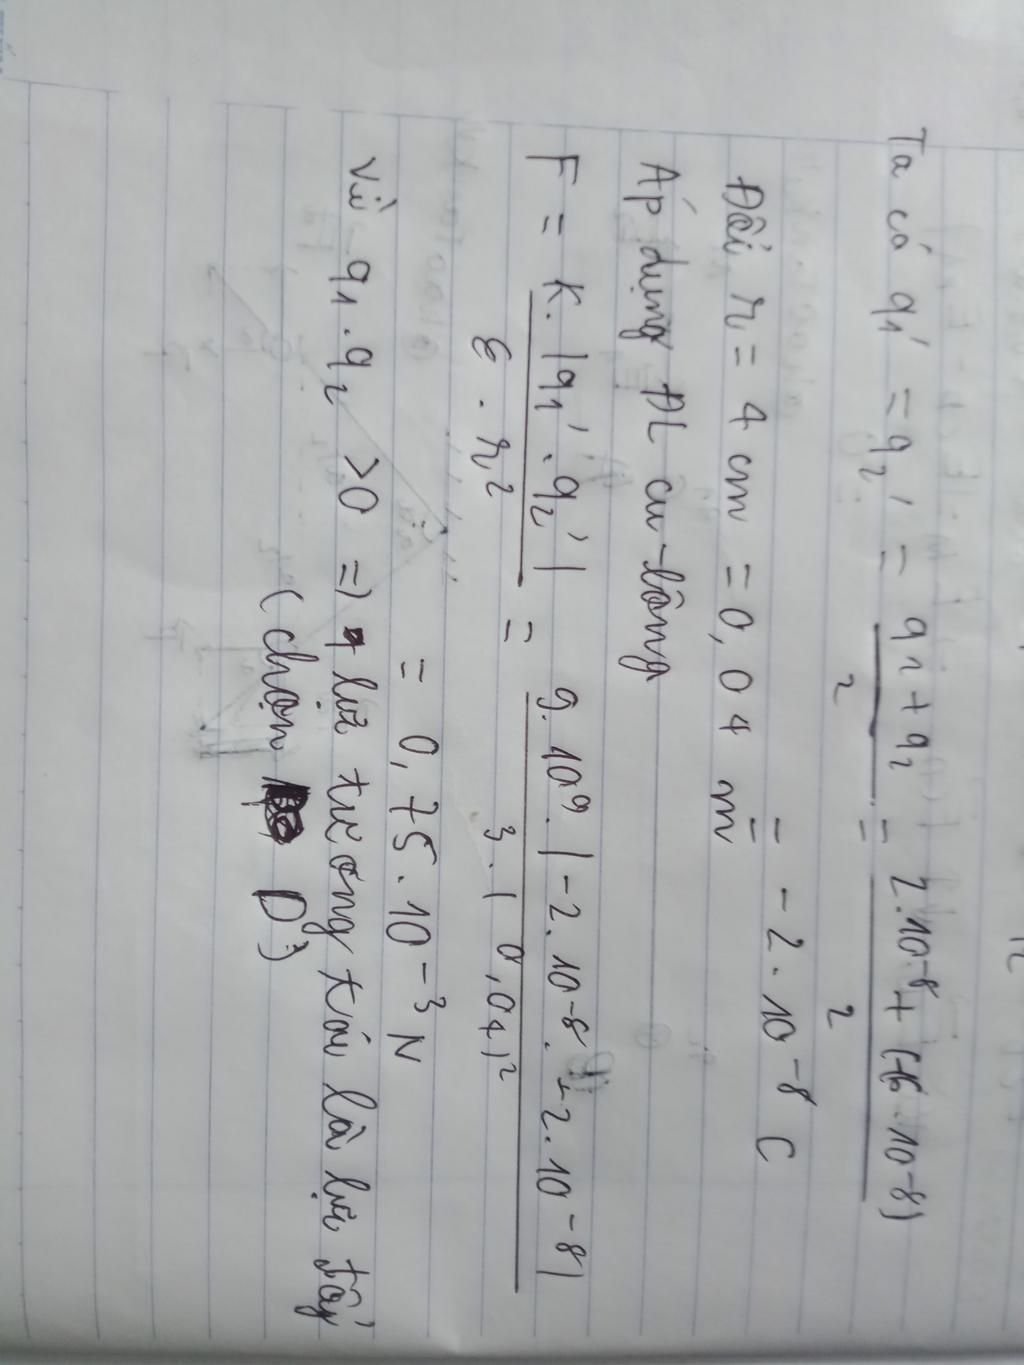 Ta có q₁' = q₂' = (q₁ + q₂)/2 = (2.10⁻⁸ + (-6.10⁻⁸))/2
= -2.10⁻⁸ C
Đổi r = 4 cm = 0,04 m
Áp dụng ĐL cu-lông
F = K.|q₁'.q₂'|/(ε.r²) = 9.10⁹.|-2.10⁻⁸.-2.10⁻⁸|/(3.(0,04)²)
= 0,75.10⁻³ N
Vì q₁.q₂ >0 => lực tương tác là lực đẩy
(chọn D)